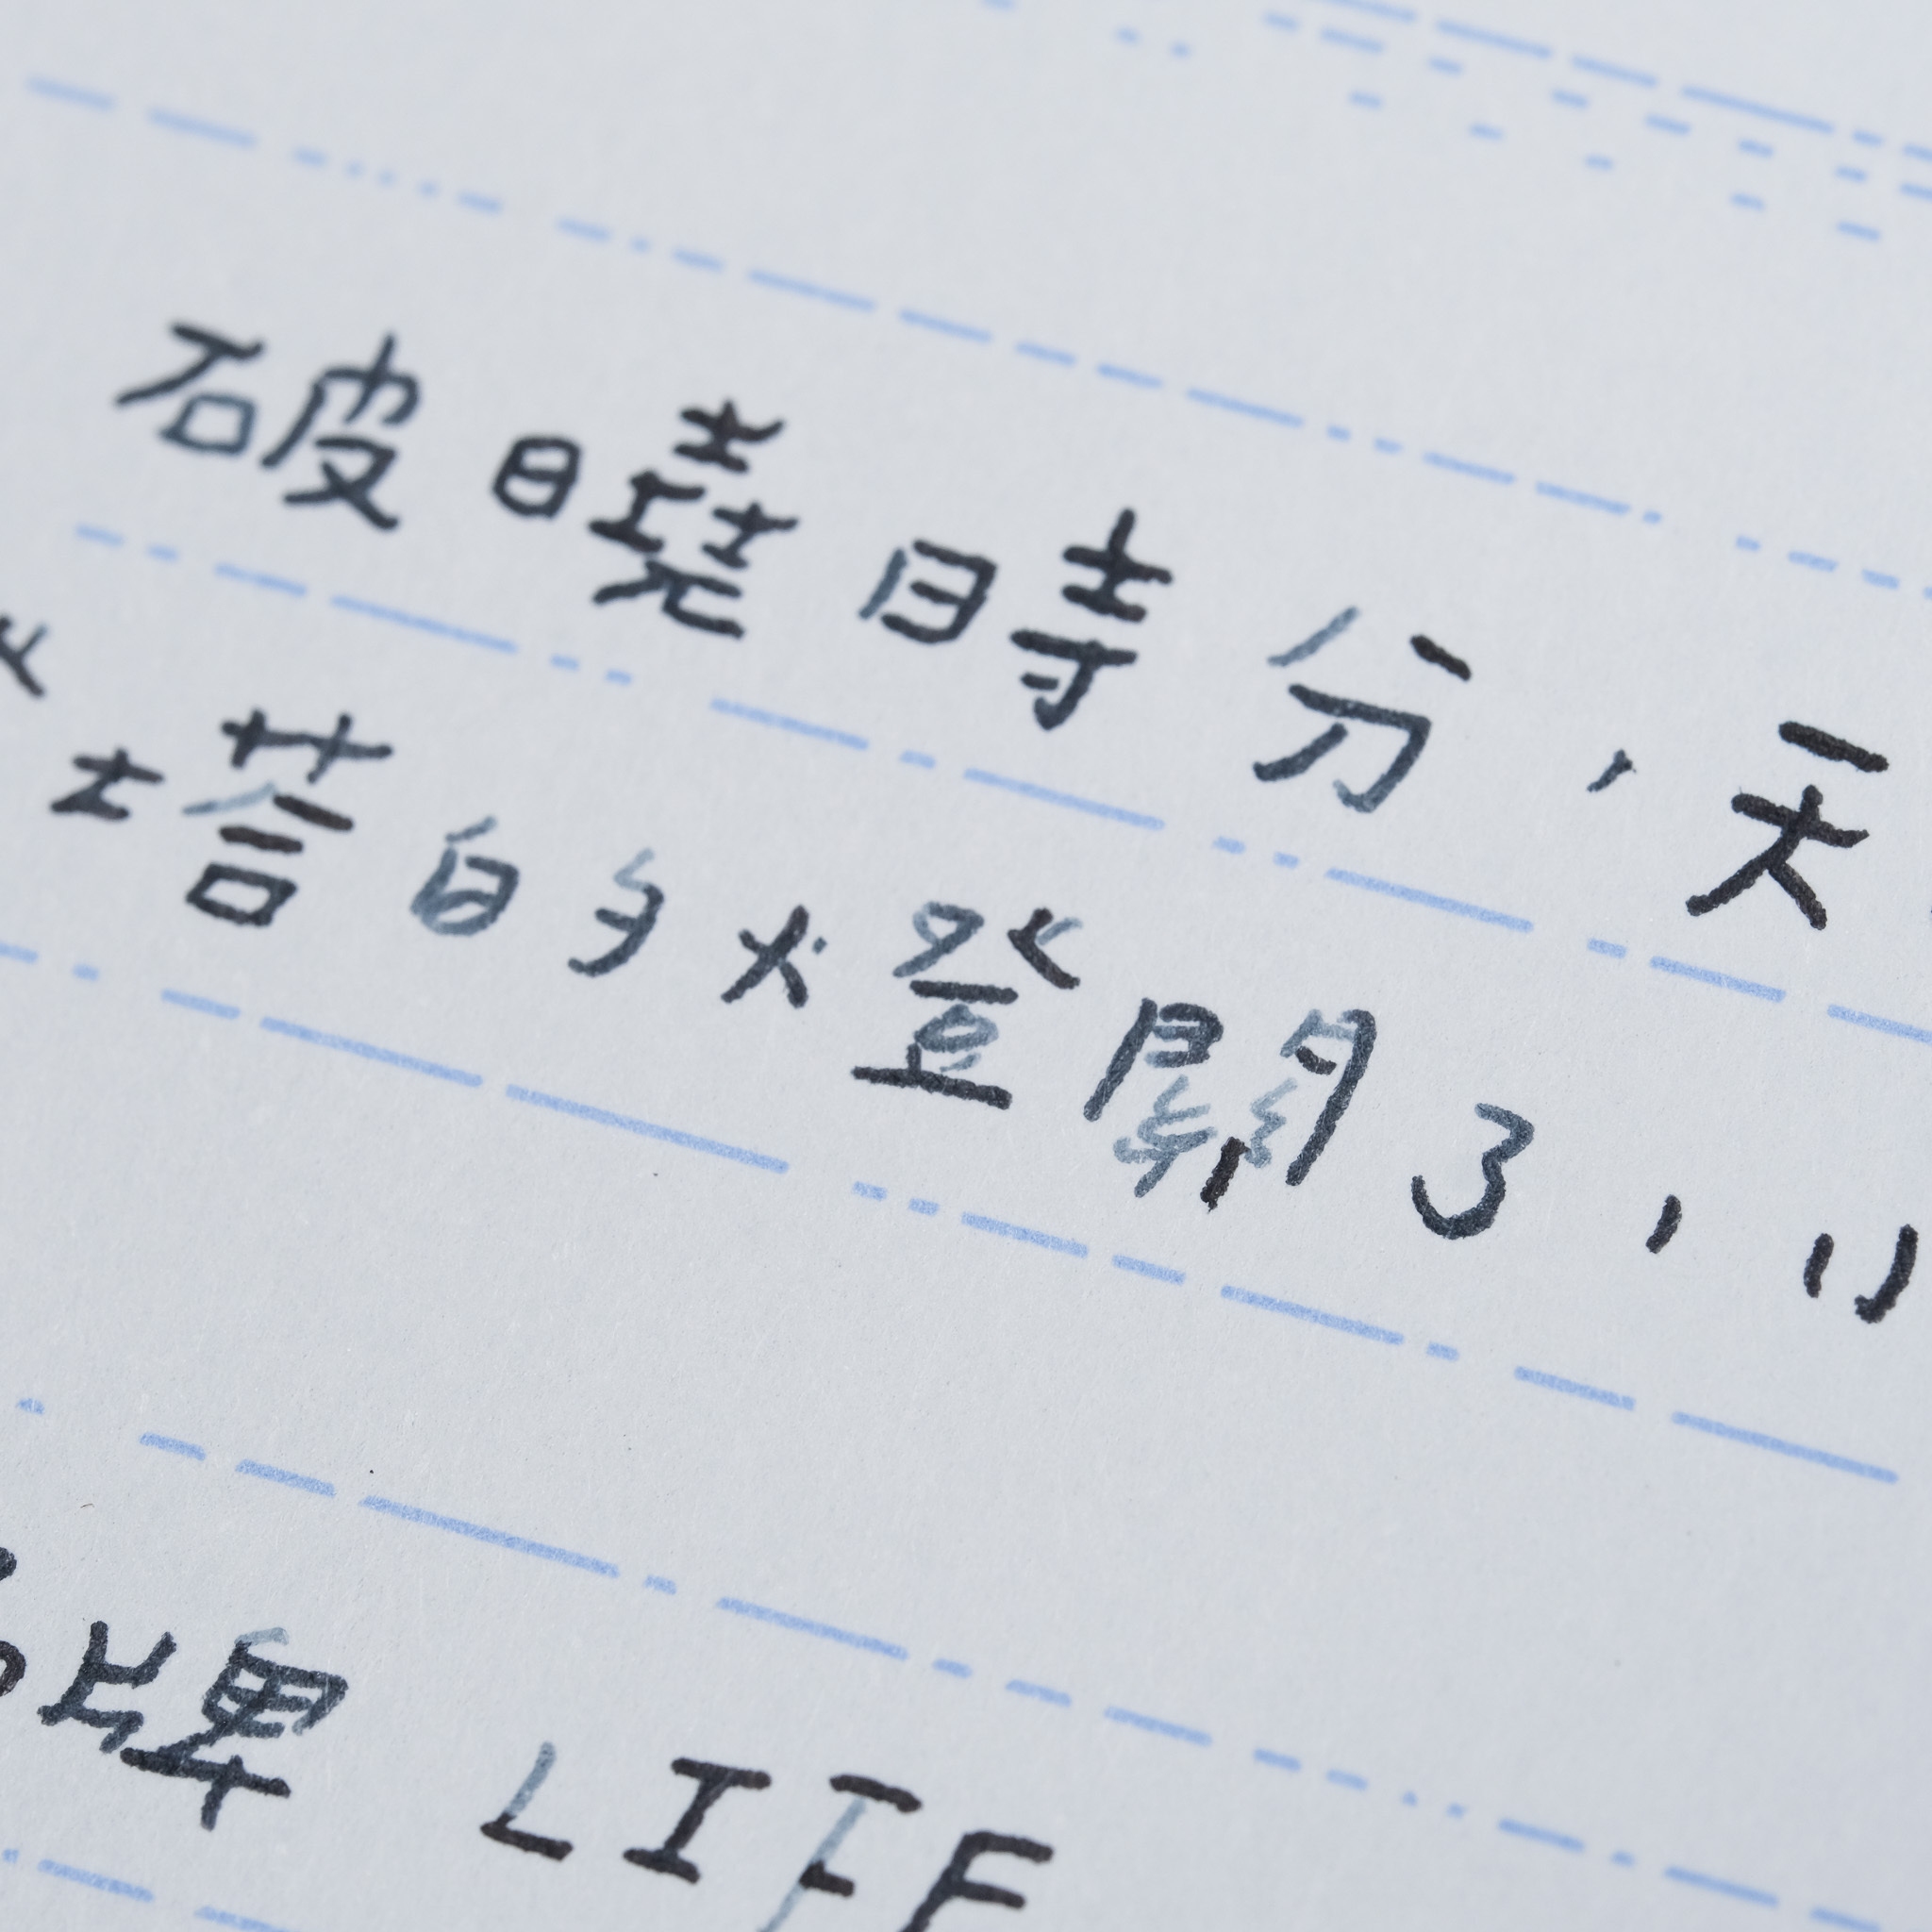 破曉時分，天
塔的燈關了，
牌 LIFE